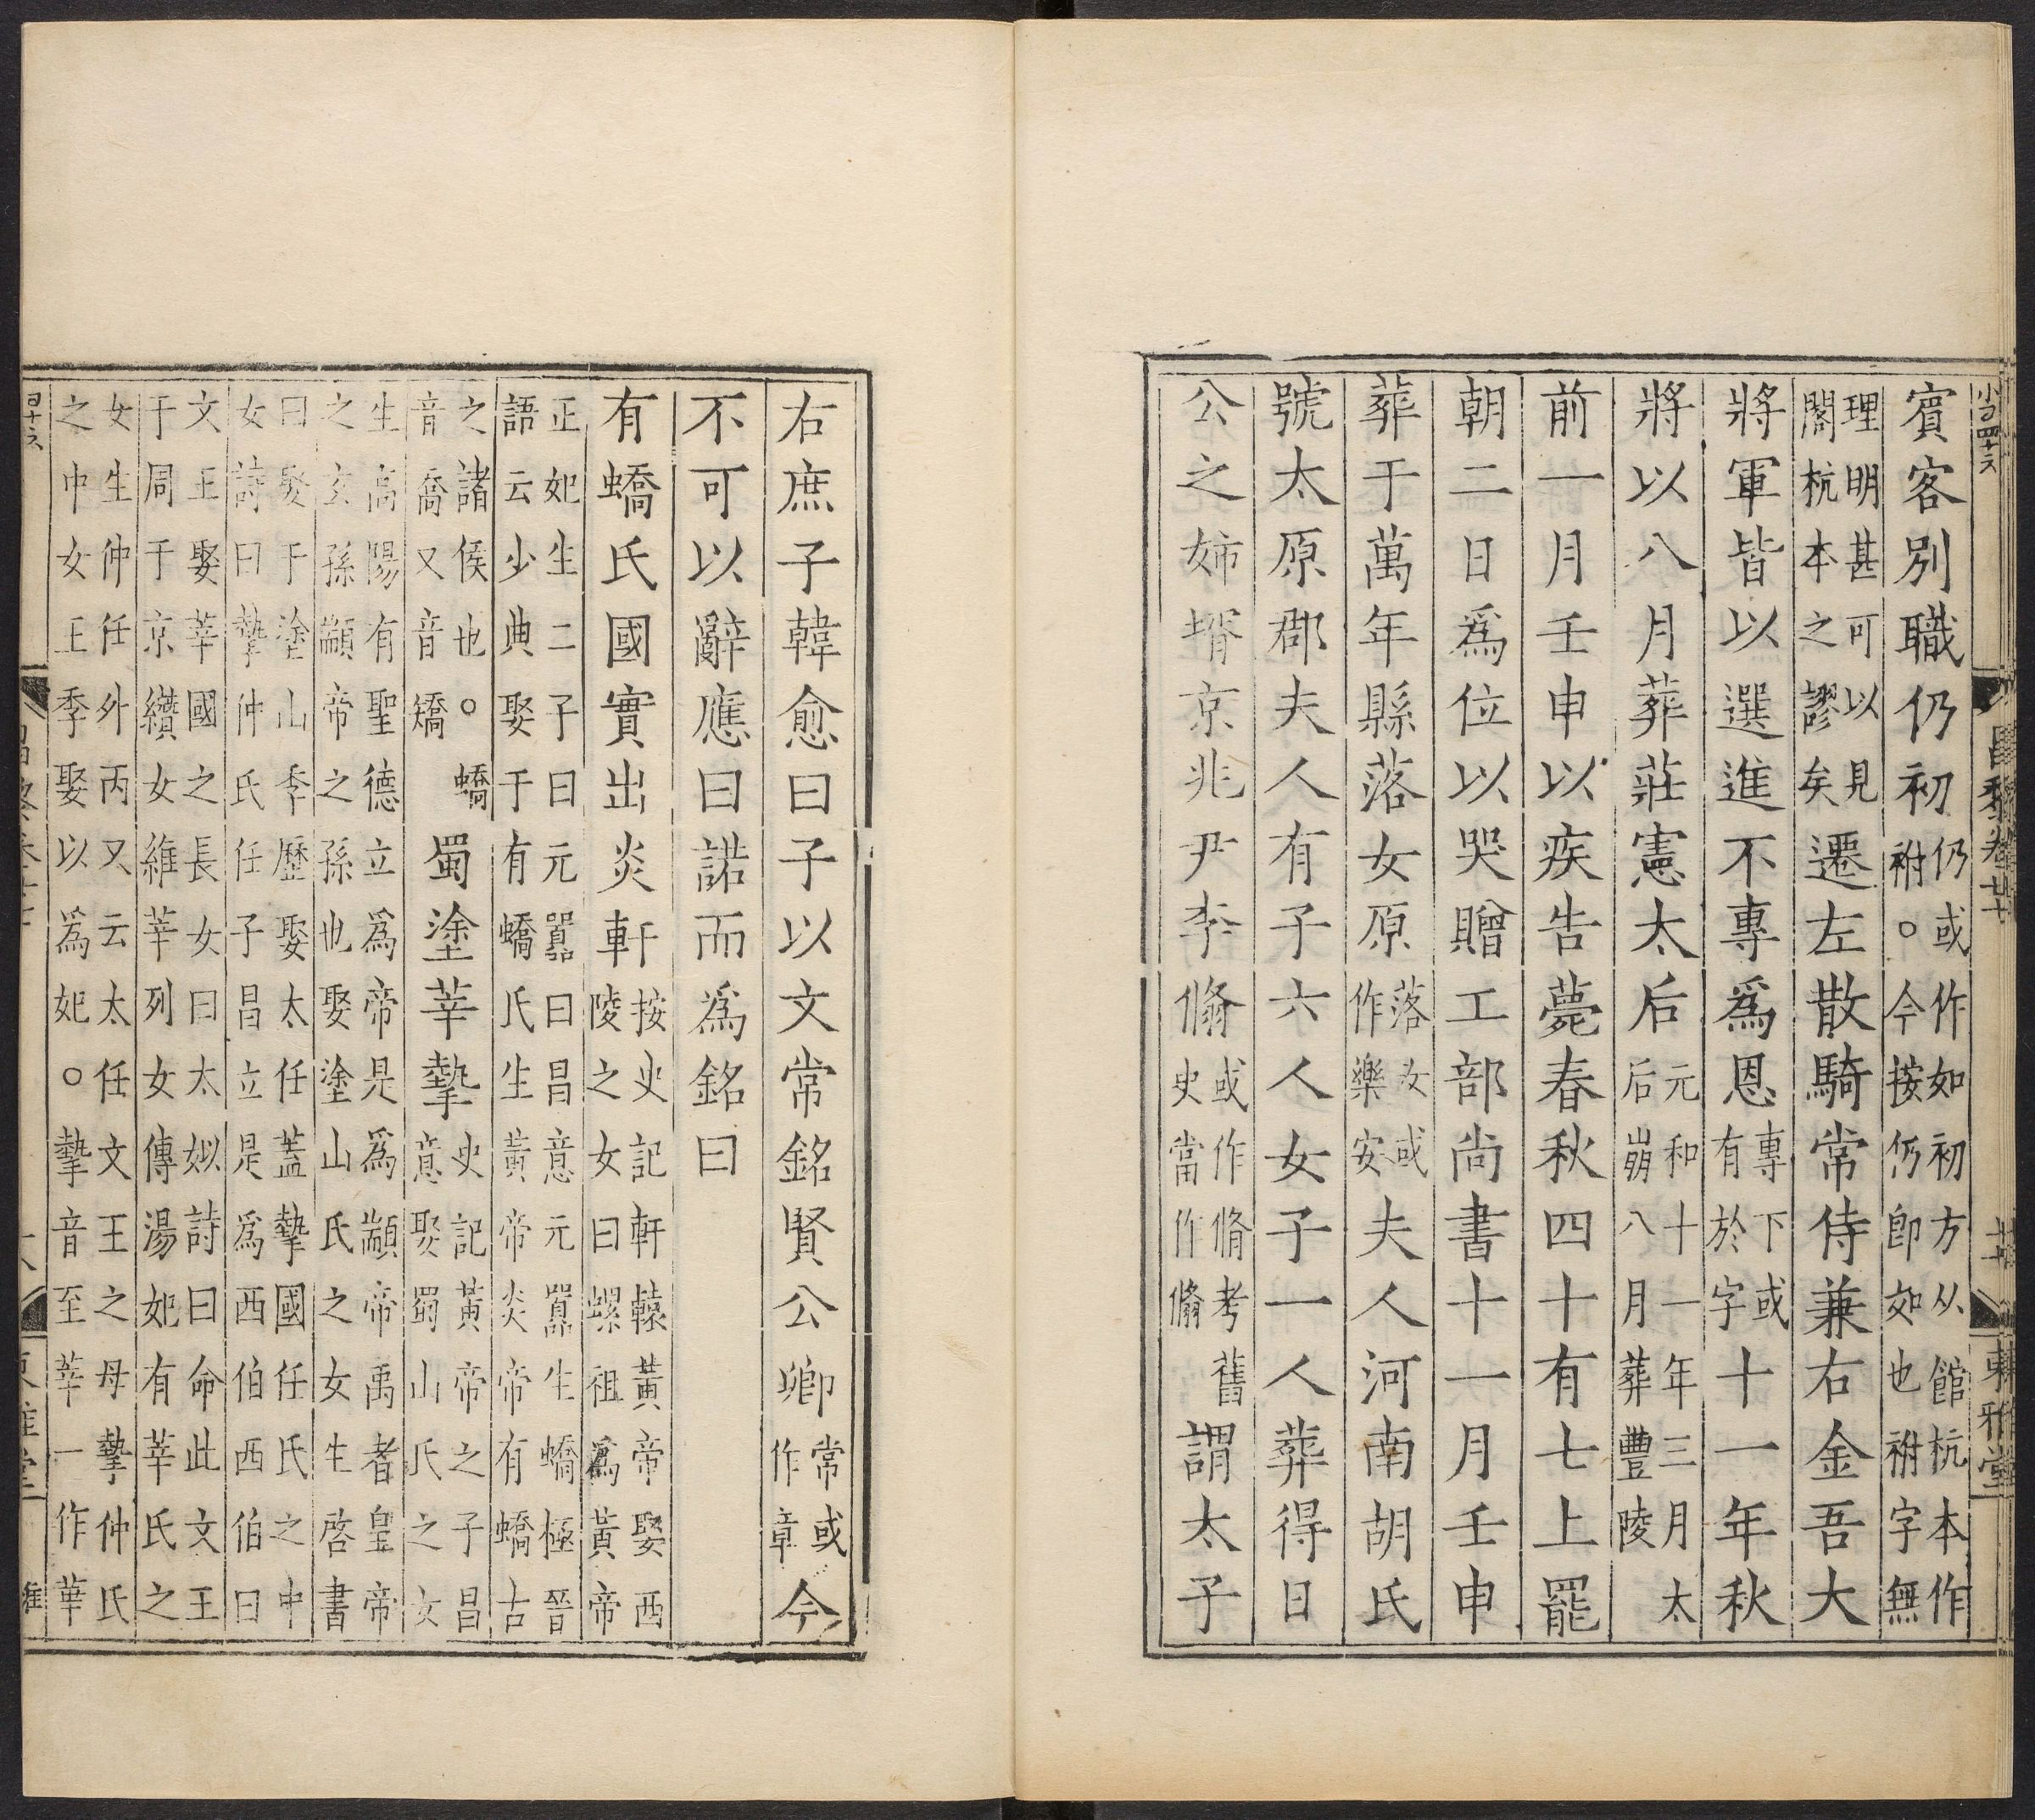 賓客別職仍初仍或作如初方从館杭本作袝○今按仍即如也袝字無
理明甚可以見閣杭本之謬矣遷左散騎常侍兼右金吾大
將軍皆以選進不專爲恩專下或有於字十一年秋
將以八月葬莊憲太后元和十一年三月太后崩八月葬豐陵
前一月壬申以疾告薨春秋四十有七上罷
朝二日爲位以哭贈工部尚書十一月壬申
葬于萬年縣落女原落汝或作樂安夫人河南胡氏
號太原郡夫人有子六人女子一人葬得日
公之姊壻京兆尹李翛或作脩考舊史當作翛謂太子
東雅堂
右庶子韓愈曰子以文常銘賢公卿常或作章今
不可以辭應曰諾而爲銘曰
有蟜氏國實出炎軒按史記軒轅黃帝娶西陵之女曰螺祖爲黃帝
正妃生二子曰元囂曰昌意元囂生蟜極晉語云少典娶于有蟜氏生黃帝炎帝有蟜古
之諸侯也○蟜音喬又音矯蜀塗莘摯史記黃帝之子昌意娶蜀山氏之女
生高陽有聖德立爲帝是爲顓帝禹者皇帝之玄孫顓帝之孫也娶塗山氏之女生啓書
曰娶于塗山季歷娶太任蓋摯國任氏之中女詩曰摯仲氏任子昌立是爲西伯西伯曰
文王娶莘國之長女曰太姒詩曰命此文王于周于京纘女維莘列女傳湯妃有莘氏之
女生仲任外丙又云太任文王之母摯仲氏之中女王季娶以爲妃○摯音至莘一作華